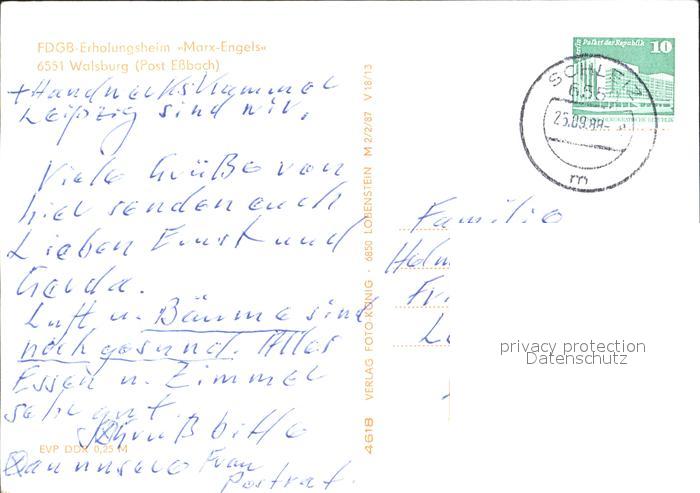 FDGB-Erholungsheim »Marx-Engels«
6551 Walsburg (Post Eßbach)
+ Handwerkskammer
Leipzig sind wir.
Viele Grüße von
hier senden euch
Lieben Ernst und
Gerda.
Luft u. Bäume sind
noch gesund. Alles
Essen u. Zimmer
sehr gut
Gruß bitte
an unsere Frau
EVP DDR 0,25 M
4618 VERLAG FOTO-KÖNIG · 6850 LOBENSTEIN M 2/2/87 V 18/13
Palast der Republik
10
SCHLEIZ
655
25.09.88
m
Familie
privacy protection
Datenschutz